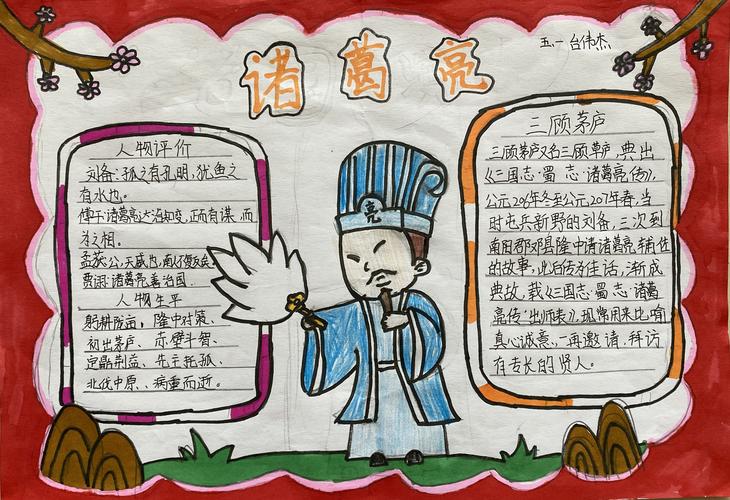 诸葛亮
五.一 台伟杰
人物评价
刘备:孤之有孔明,犹鱼之
有水也。
傅干:诸葛亮达治知变,正而有谋,而
为之相。
孟获:公,天威也,南人不复反矣。
贾诩:诸葛亮善治国
人物生平
躬耕陇亩、隆中对策、
初出茅庐、赤壁斗智、
定鼎荆益、先主托孤、
北伐中原、病重而逝。
亮
三顾茅庐
三顾茅庐又名三顾草庐,典出
《三国志·蜀志·诸葛亮传》,
公元206年冬至公元207年春,当
时屯兵新野的刘备,三次到
南阳郡邓县隆中请诸葛亮辅佐
的故事,此后传为佳话,渐成
典故,载《三国志·蜀志·诸葛
亮传·出师表》,现常用来比喻
真心诚意,一再邀请,拜访
有专长的贤人。